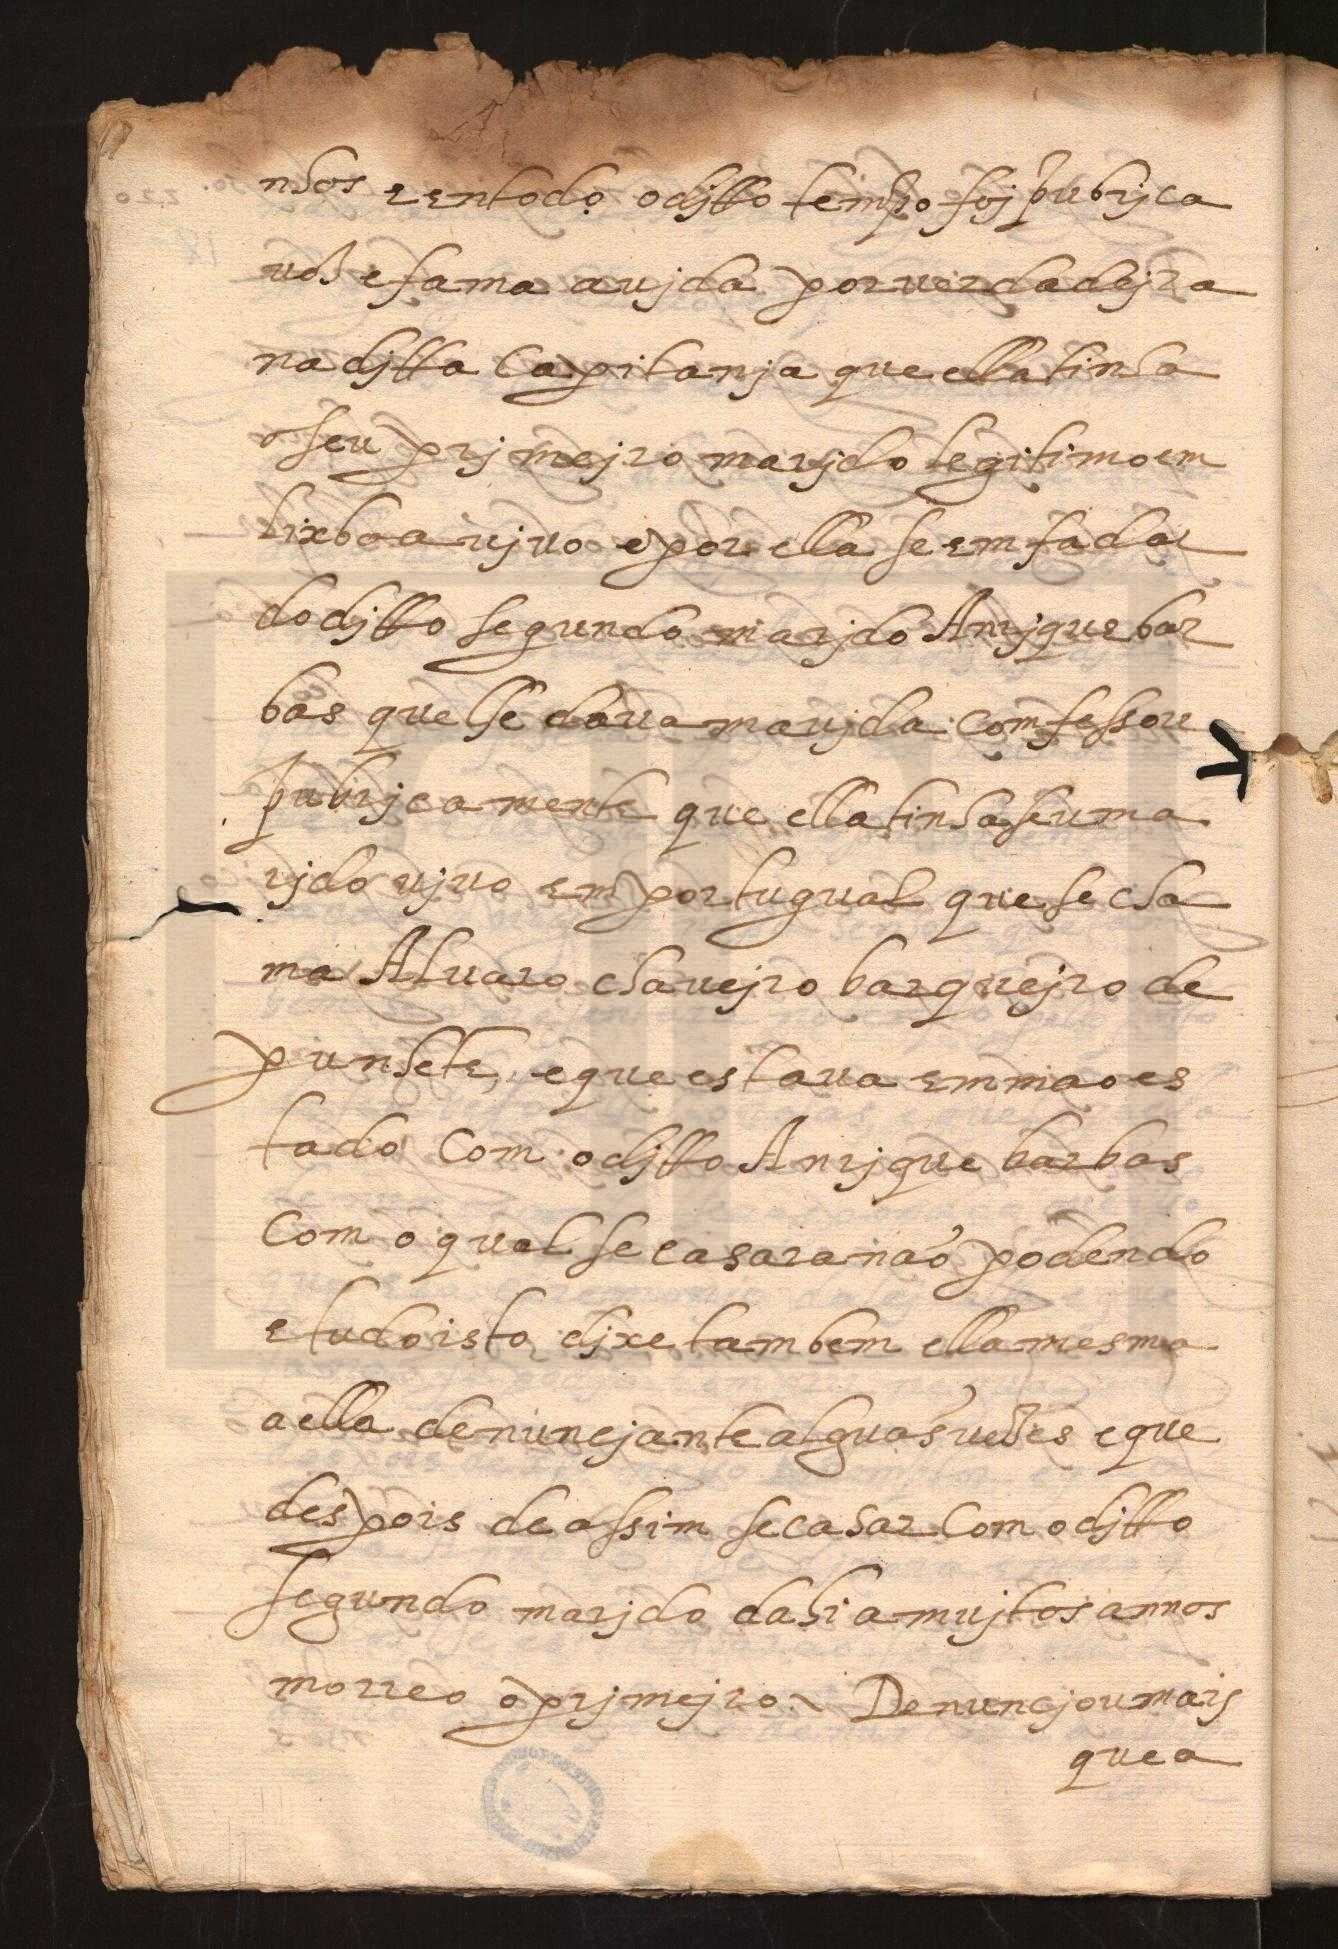 nhos e entodo o ditto tempo foj pubrica
vos e fama avjda por verdadejra
na ditta Capitanja que ella tinha
o seu prjmejro marjdo legitimo em
lixboa vjvo e por ella se emfadar
do ditto segundo marjdo Anrjque bar
bas que lhe dava ma vjda comfessou
pubrjcamente que ella tinha seu ma
rjdo vjvo em portugual que se cha
ma Alvaro chavejro barquejro de
punhete, e que estava em mao es
tado com o ditto Anrjque barbas
com o qual se casara não podendo
e tudo isto djxe tambem ella mesma
a ella denuncjante alguãs vezes e que
despois de assim se casar com o ditto
segundo marjdo dahi a mujtos annos
morreo o prjmejro. Denuncjou mais
que a